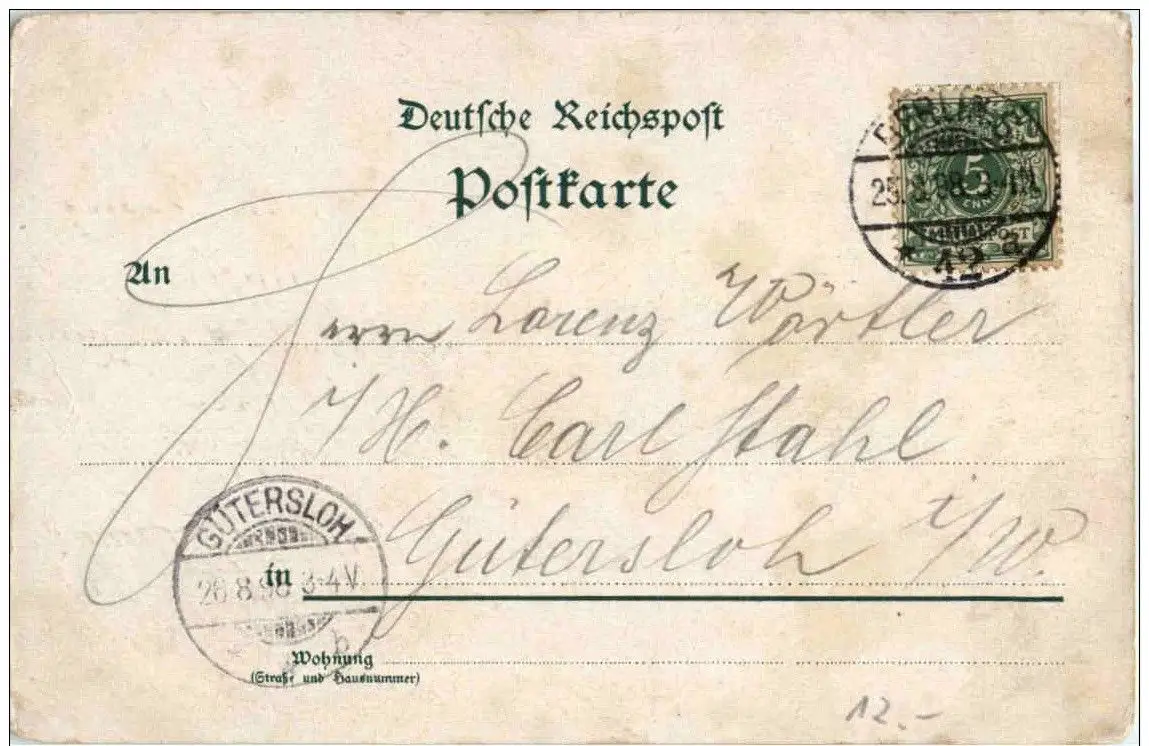 Deutsche Reichspost
Postkarte
5
REICHSPOST
BERLIN
25.8.98
* 12 a
An
Herrn Lorenz Wörtler
i/H. Carl Stahl
GÜTERSLOH
26.8.98 3-4 V.
* b
in Gütersloh i/W.
Wohnung
(Straße und Hausnummer)
12.-